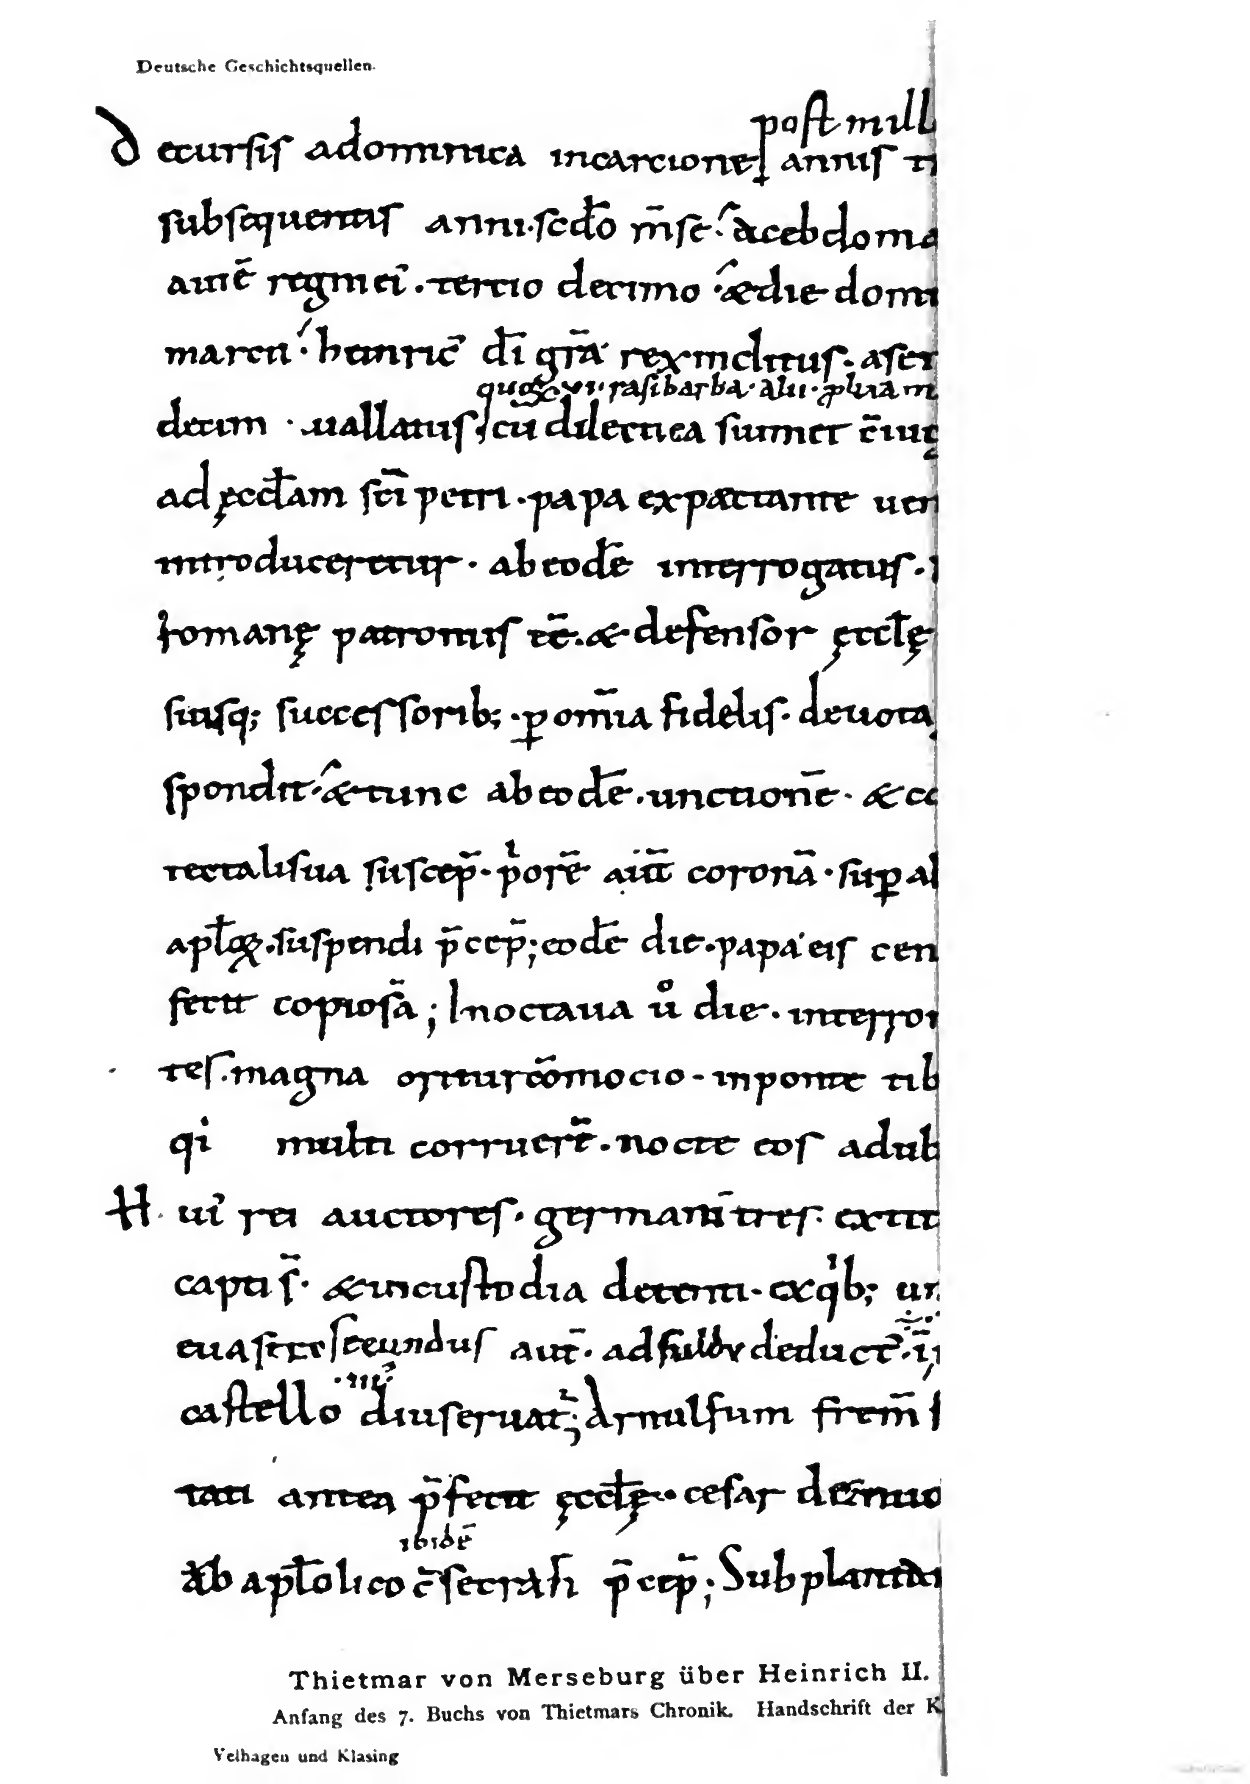 Deutsche Geschichtsquellen.
post mill
Decursis a dominica incarcione annis
subsequentis anni · scd̄o m̄se · & ac ebdoma
aut̄e regni ei᾽ · tercio decimo · & die domi
marcii · heinric᾽ dī grā rex inclitus · a
quoꝝ vi · rasi barba · alii · ꝓlixa
decim · uallatus cū dilecta sui met
ad ęccł̄am sc̄i petri · papa expectante uen
introduceretur · ab eod̄e interrogatus ·
romanę patronus e͞e · & defensor ęccł̄ę
suisq; successorib; · ꝑ om̄ia fidelis · deuota
spondit · & tunc ab eod̄e · unction̄e · & co
rectali sua suscep̄ · p̓or̄e aut̄ coronā · suꝑ al
apl̄oꝝ · suspendi p̄cep̄; eod̄e die · papa eis cen
fecit copiosā; In octaua ů die · inter ro
tes · magna oritur cōmocio · in ponte tib
qi multi corruer̄t · nocte eos
Hui᾽ rei auctores · germani tres · extit
capti s̄ · & in custodia detenti · ex q̓b; un
euasit secundus aut̄ · ad fuldu deduct᾽ ·
castello diu seruat᾽; Arnulfum fr̄em
tati antea p̄fecit ęccł̄ę · cesar
ibid̄e
ab apl̄olico c̄secrari p̄cep̄; Sub
Thietmar von Merseburg über Heinrich II.
Anfang des 7. Buchs von Thietmars Chronik. Handschrift der K
Velhagen und Klasing